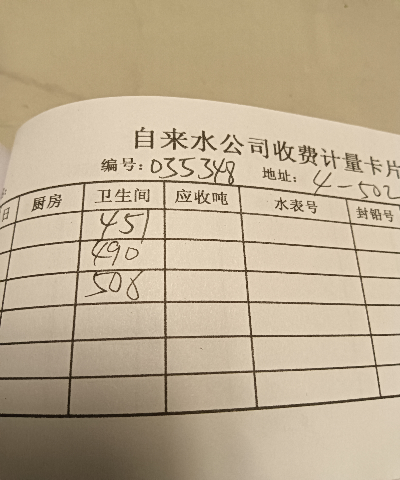 自来水公司收费计量卡片
编号：035348 地址：4-502
日 厨房 卫生间 应收吨 水表号 封铅号
451
490
508